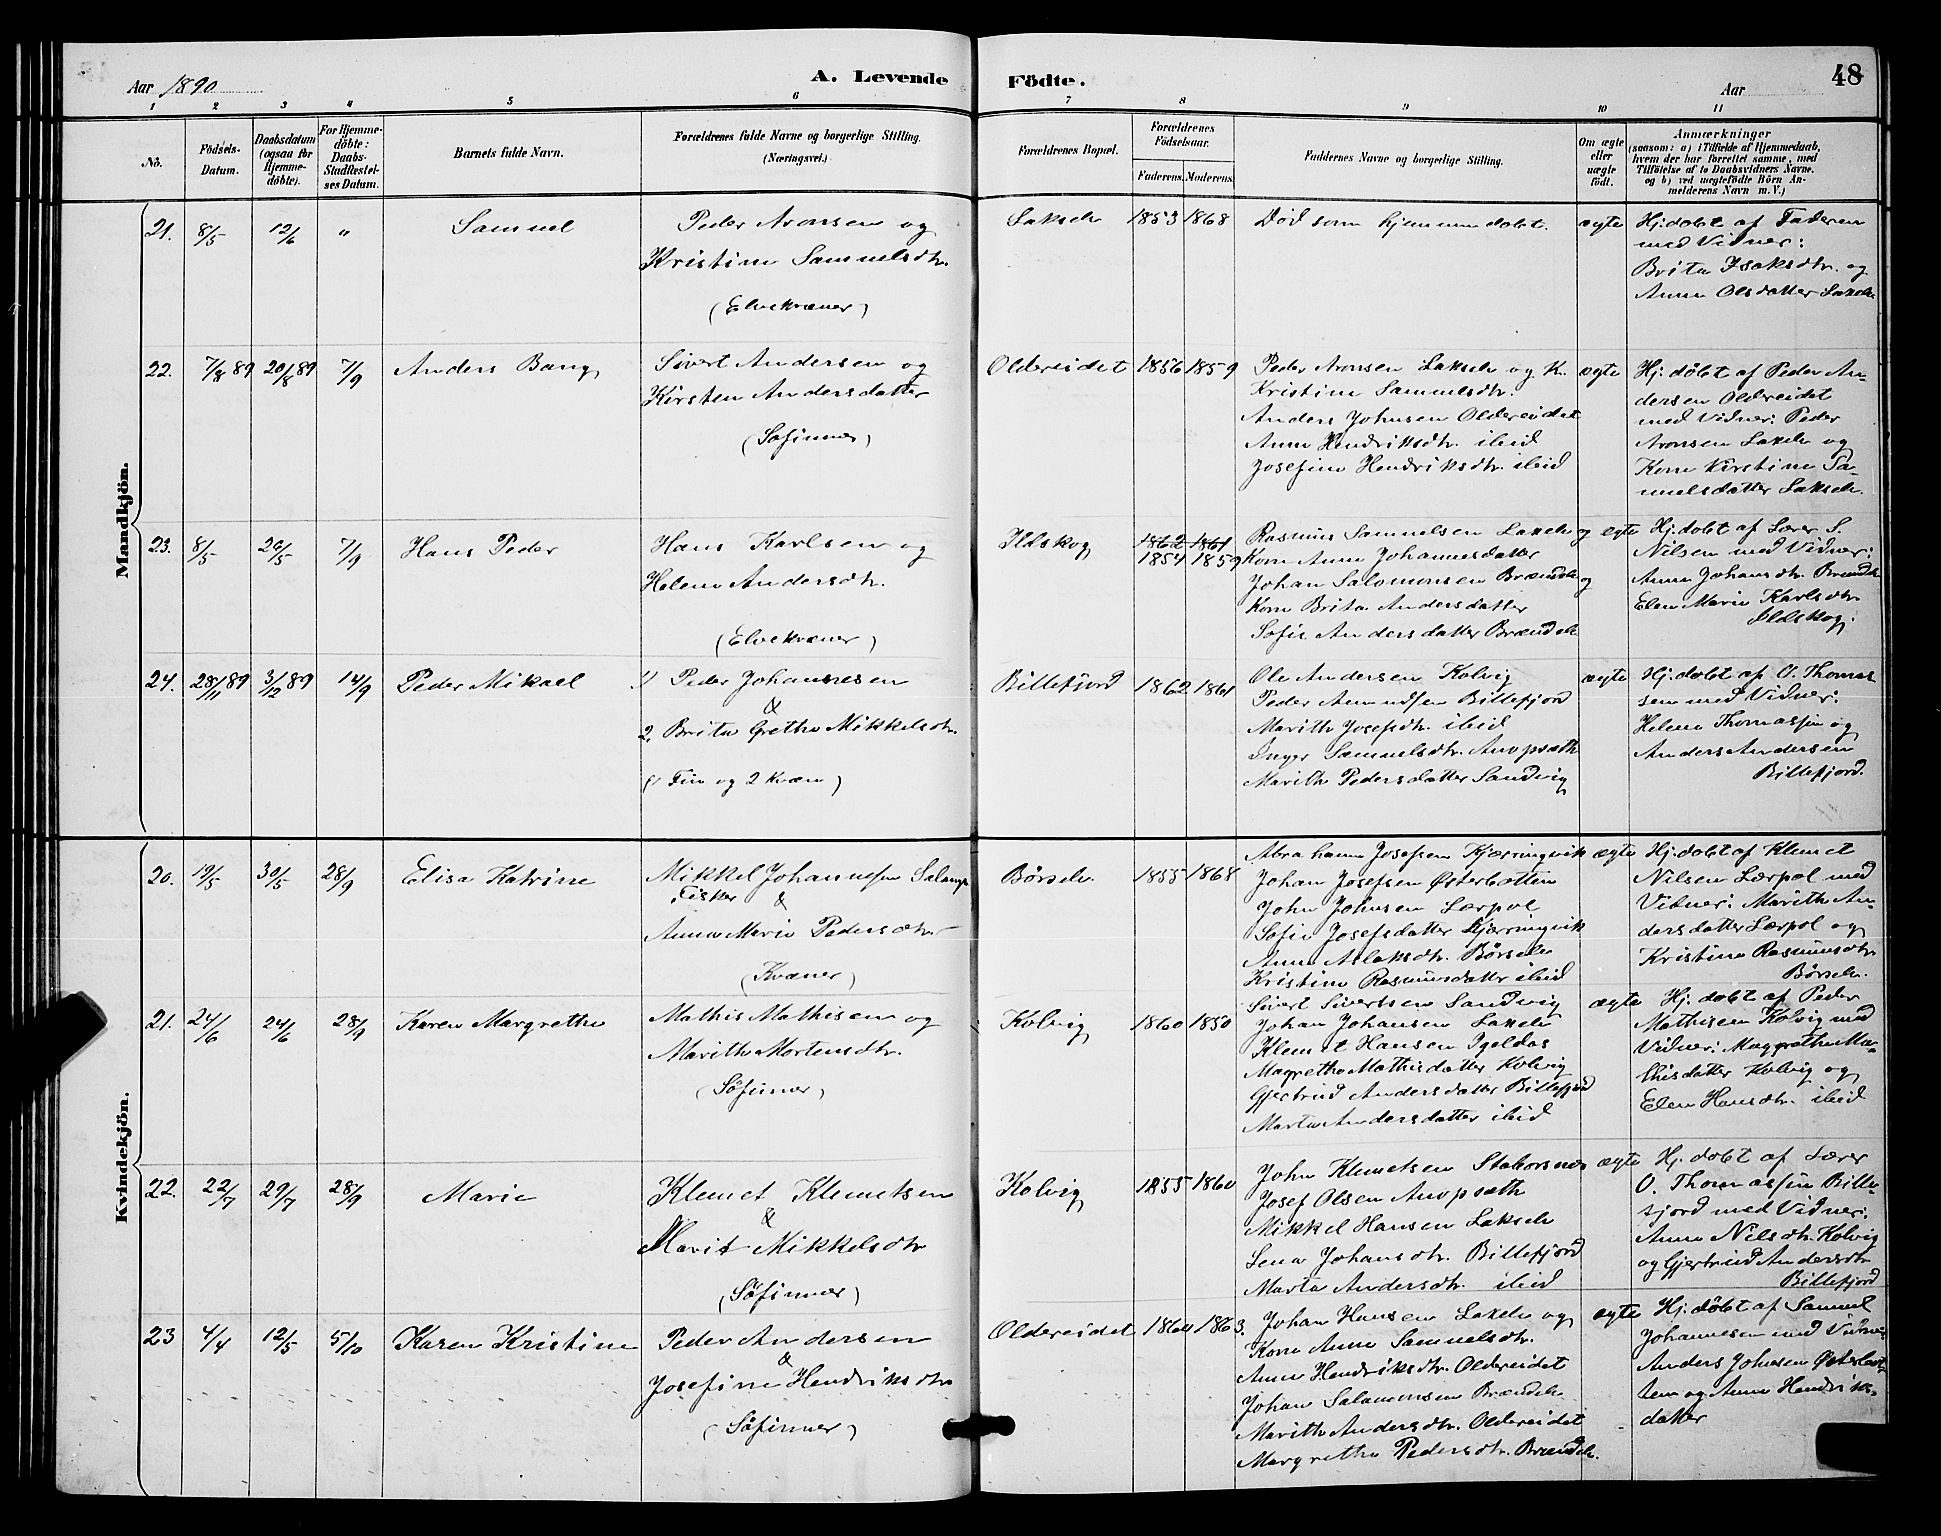 Aar 1890
A. Levende
Födte.
Aar
48
1 2 3 4 5 6 7 8 9 10 11
No.
Födsels-
Datum.
Daabsdatum
(ogsaa for
Hjemme-
døbte).
For Hjemme-
döbte:
Daabs-
Stadfæstel-
ses Datum.
Barnets fulde Navn.
Forældrenes fulde Navne og borgerlige Stilling.
(Næringsvei.)
Forældrenes Bopæl.
Forældrenes
Födselsaar.
Faderens. Moderens.
Faddernes Navne og borgerlige Stilling.
Om ægte
eller
uægte
födt.
Anmærkninger
(saasom: a) i Tilfælde af Hjemmedaab,
hvem der har forrettet samme, med
Tilföielse af to Daabsvidners Navne.
og b) ved uægtefödte Börn An-
melderens Navn m. V.)
Mandkjön.
21. 8/5 12/6 " Samuel
Peder Aronsen og
Kristine Samuelsdtr.
(Elvekvæner)
Lakselv 1853 1868
Død som hjemmedøbt.
ægte
Hj. døbt af Faderen
med Vidner:
Brita Isaksdtr. og
Anne Olsdatter Lakselv
22. 7/8 89 20/8 89 7/9 Anders Bang
Sivert Andersen og
Kirsten Andersdatter
(Søfinner)
Oldereidet 1856 1859
Peder Aronsen Lakselv og K.
Kristine Samuelsdtr.
Anders Johnsen Oldereidet
Anne Hendriksdtr. ibid
Josefine Hendriksdtr. ibid
ægte
Hj. døbt af Peder An-
dersen Oldereidet
med Vidner: Peder
Aronsen Lakselv og
Kone Kirstine Sa-
muelsdatter Lakselv.
23. 8/5 26/5 7/9 Hans Peder
Hans Karlsen og
Helene Andersdtr.
(Elvekvæner)
Ildskog 1862 1861
1854 1859
Rasmus Samuelsen Lakselv og
Kone Anne Johannesdatter
Johan Salomonsen Brændelv og
Kone Brita Andersdatter
Sofie Andersdatter Brændelv
ægte
Hj. døbt af Lærer S.
Nilsen med Vidner:
Anne Johansdtr. Brændelv
Elen Marie Karlsdtr.
Ildskog.
24. 28/11 89 3/12 89 14/9 Peder Mikael
1) Peder Johannesen
&
2, Brita Grethe Mikkelsdtr.
(1 Fin og 2 Kvæn)
Billefjord 1862 1861
Ole Andersen Kolvig
Peder Amundsen Billefjord
Marith Josefsdtr. ibid
Inger Samuelsdtr. Anopsæth
Marith Pedersdatter Sandvig
ægte
Hj. døbt af O. Thomas-
sen med Vidner:
Helene Thomassen og
Anders Andersen
Billefjord.
Kvindekjön.
20. 19/5 30/5 28/9 Elisa Katrine
Mikkel Johannesen
Fisker &
Anna Marie Pedersdtr
(Kvæner)
Børselv. 1855 1868
Abraham Josefsen Kjærringvik
Johan Josefsen Østerbotten
John Johnsen Lærpol
Sofie Josefsdatter Kjærringvik
Anne Aslaksdtr. Børselv
Kristine Rasmusdatter ibid
ægte
Hj. døbt af Klemet
Nilsen Lærpol med
Vidner: Marith An-
dersdatter Lærpol og
Kristine Rasmusdtr
Børselv.
21. 24/6 24/6 28/9 Karen Margrethe
Mathis Mathisen og
Marith Mortensdtr.
(Søfinner)
Kolvig 1860 1850
Sivert Sivertsen Sandvig
Johan Johansen Lakselv
Klemet Hansen Igeldas
Magrethe Mathisdatter Kolvig
Gjertrud Andersdatter Billefjord
Marta Andersdatter ibid
ægte
Hj. døbt af Peder
Mathisen Kolvig med
Vidner: Magrethe Ma-
thisdatter Kolvig og
Elen Hansdtr. ibid
22. 22/7 29/7 28/9 Marie
Klemet Klemetsen
&
Marit Mikkelsdtr
(Søfinner)
Kolvig 1855 1860
John Klemetsen Staborsnes
Josef Olsen Anopsæth
Mikkel Hansen Lakselv
Lena Johansdtr. Billefjord
Marta Andersdtr. ibid
ægte
Hj. døbt af Lærer
O. Thomassen Bille-
fjord med Vidner:
Anne Nilsdtr. Kolvig
og Gjertrud Andersdtr
Billefjord
23 4/4 12/5 5/10 Karen Kristine
Peder Andersen
&
Josefine Hendriksdtr
(Søfinner)
Oldereidet 1864 1863.
Johan Hansen Lakselv og
Kone Anne Samuelsdtr.
Anne Hendriksdtr. Oldereidet
Johan Salamonsen Brændelv
Marith Andersdtr. Oldereidet
Margrethe Pedersdtr. Brændelv.
ægte
Hj. døbt af Samuel
Johannesen med Vidner
Anders Johnsen Østerbot-
ten og Anne Hendriks-
datter